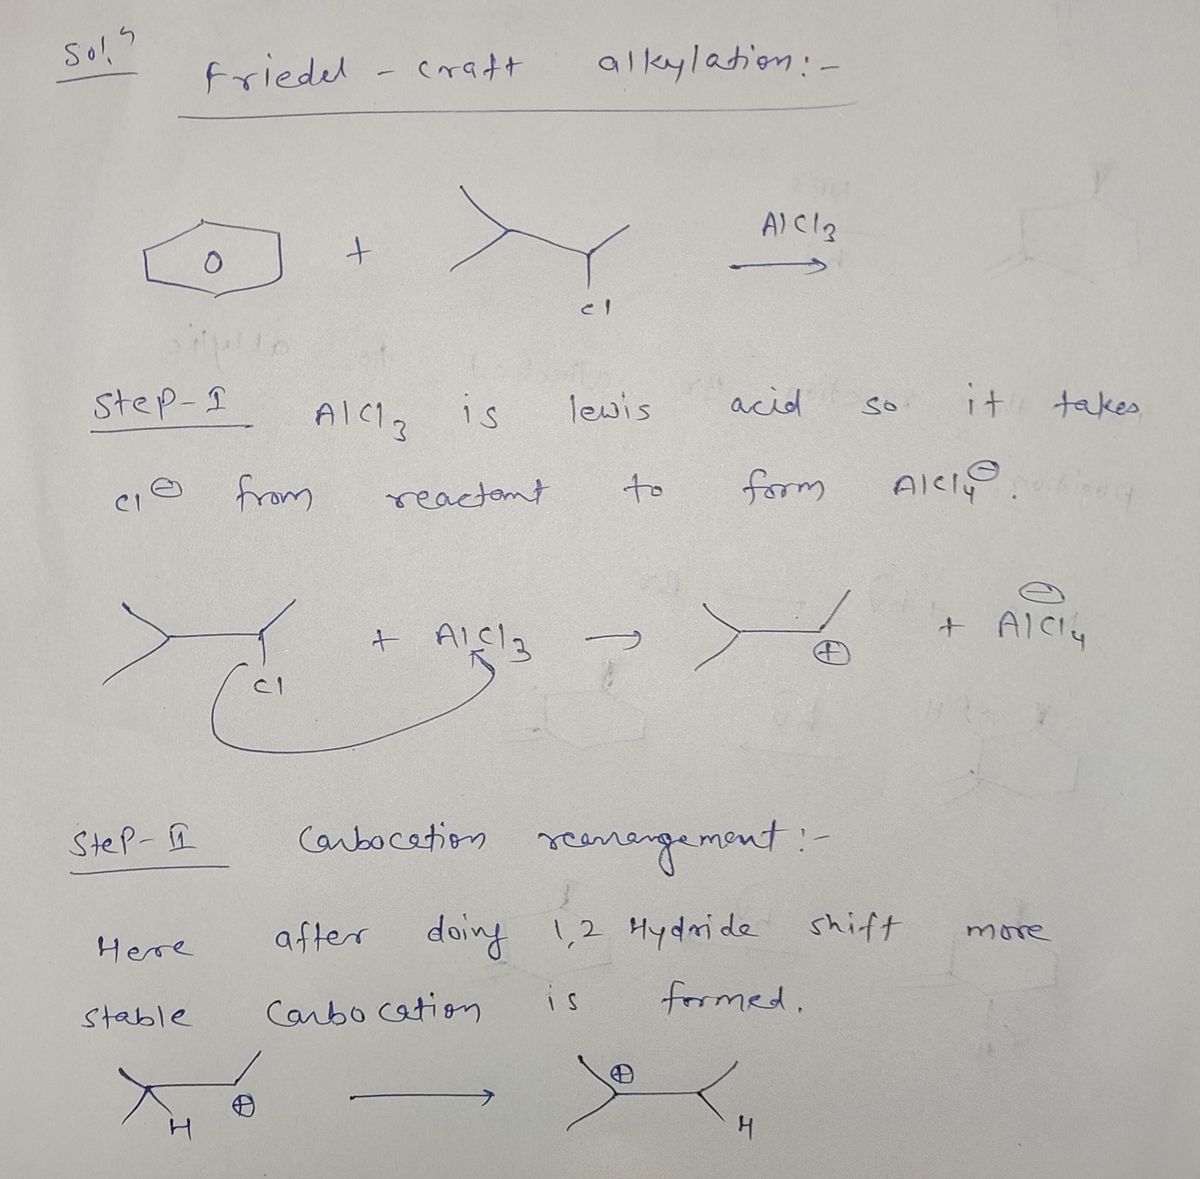 Solⁿ
Friedel-craft alkylation:-
+ AlCl₃
Cl
Step-I AlCl₃ is lewis acid so it takes
Cl⊖ from reactant to form AlCl₄⊖.
+ AlCl₃ → ⊕ + AlCl₄⊖
Cl
Step-II Carbocation rearrangement:-
Here after doing 1,2 Hydride shift more
stable Carbocation is formed.
H ⊕ → ⊕ H